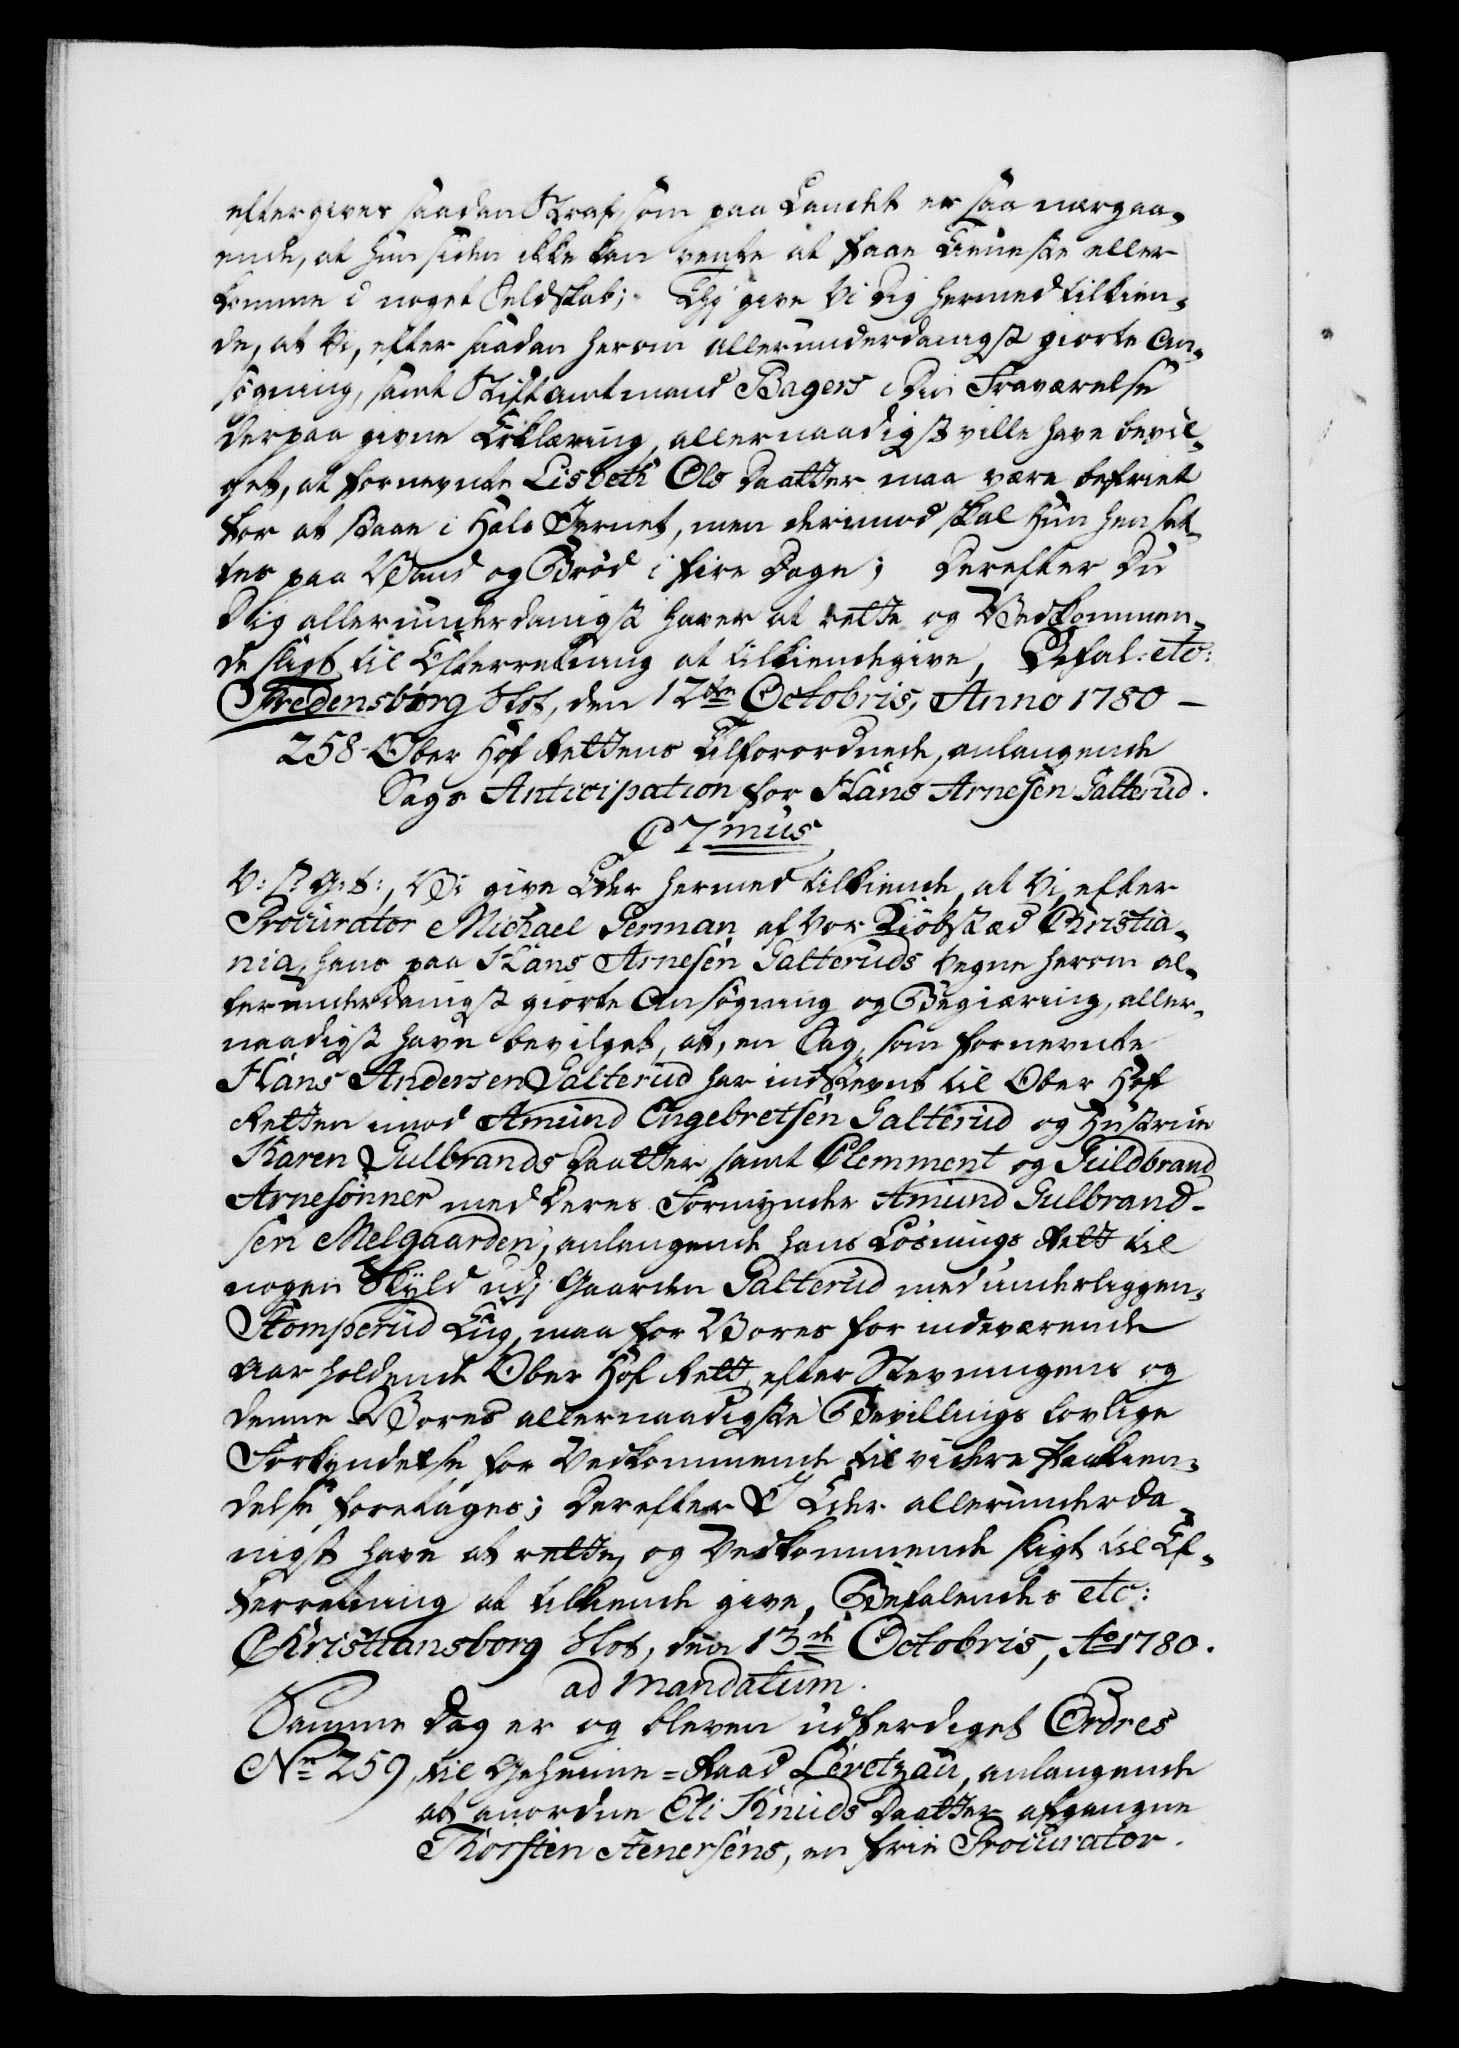 eftergives saadan Straf, som paa Landet er saa nærgaa-
ende, at hun siden ikke kan vente at faae Tieneste eller
komme i noget Selskab; Thj give Vi Dig hermed tilkien-
de, at Vi, efter saadan herom allerunderdanigst giorte An-
søgning, samt Stiftamtmand Bagers i Din Fraværelse
derpaa givne Erklæring, allernaadigst ville have bevil-
get, at fornevnte Lisbeth Ols Daatter maa være befriet
for at staae i Hals Jernet, men derimod skal Hun hensæt-
tes paa Vand og Brød i fire Dage; Derefter Du
Dig allerunderdanigst haver at rette og Vedkommen-
de sligt til Efterretning at tilkiendegive, Befal: etc:
Fredensborg Slot, den 12te Octobris, Anno 1780 –
258 Ober Hof Rettens Tilforordnede, anlangende
Sags Anticipation for Hans Arnesen Galterud.
C 7mus
V: S: G: t:, Vi give Eder hermed tilkiende, at Vi, efter
Procurator Michael German af Vor Kiøbstæd Christia-
nia, hans paa Hans Arnesen Galteruds Vegne herom al-
lerunderdanigst giorte Ansøgning og Begiæring, aller-
naadigst have bevilget, at, en Sag, som fornevnte
Hans Andersen Galterud har indstevnt til Ober Hof
Retten imod Amund Engebretsen Galterud og Hustrue
Karen Gulbrands Daatter, samt Clemment og Guldbrand
Arnesønner med deres Formynder Amund Gulbrand-
sen Melgaarden, anlangende hans Løsnings Rett til
nogen Skyld udj Gaarden Galterud med underliggen-
Stomperud Eng, maa for Vores for indeværende
Aar holdende Ober Hof Rett, efter Stevningens og
denne Vores allernaadigste Bevillings lovlige
Forkyndelse for Vedkommende til videre Paakien-
delse foretages; Derefter I Eder allerunderda-
nigst have at rette, og Vedkommende sligt til Ef-
terretning at tilkiende give, Befalendes etc:
Christiansborg Slot, den 13de Octobris, Ao 1780.
ad mandatum.
Samme Dag er og bleven udferdiget Ordres
No 259, til Geheime-Raad Levetzau, anlangende
at anordne Eli Knuds Daatter afgangne
Thorsten Stenersens, en frie Procurator.